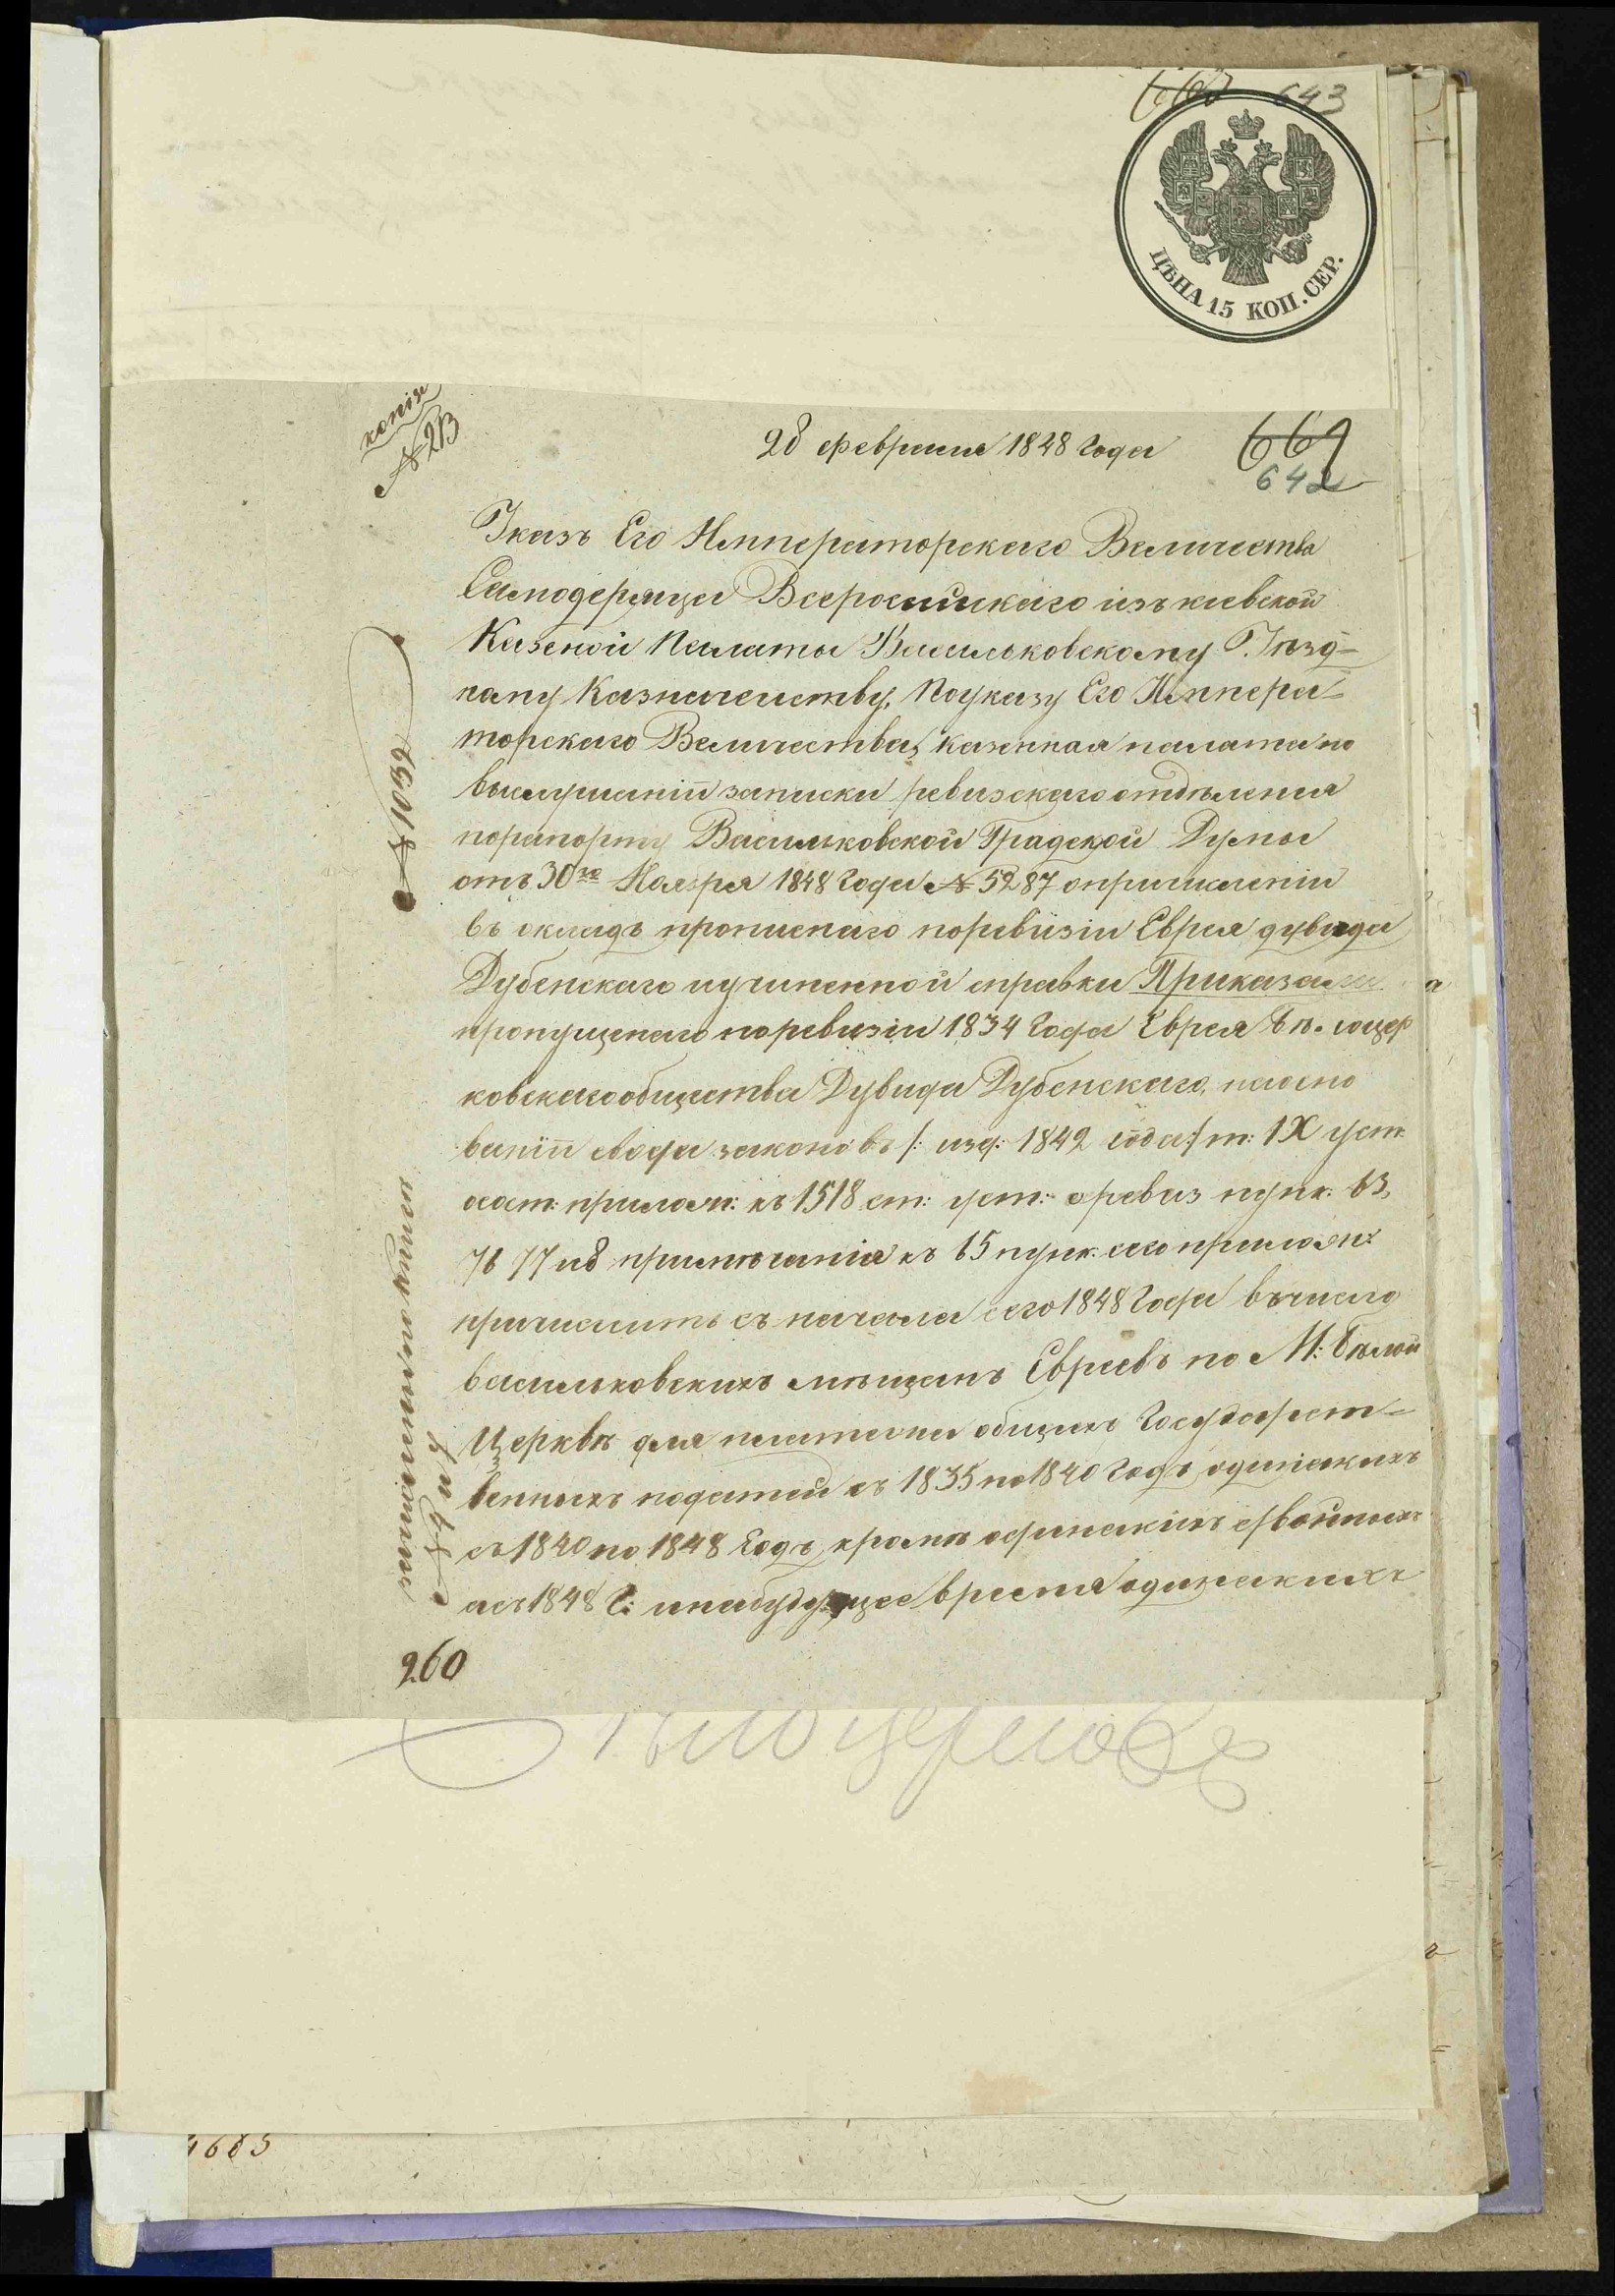 643
ЦѢНА 15 КОП. СЕР.
копія
№ 213
28 февраля 1848 года
669
642
Указъ Его Императорскаго Величества
Самодержца Всеросийскаго изъ киевской
Казеной Палаты Васильковскому Уѣзд-
ному Казначейству, По указу Его Импера-
торскаго Величества, казенная палата по
выслушаніи записки ревизскаго отдѣления
по рапорту Васильковской Градской Думы
отъ 30го Ноября 1848 года № 5287 о причислении
въ окладъ прописнаго по ревизіи Еврея дувида
Дубенскаго и учиненной справки Приказали
пропущенаго по ревизіи 1834 года Еврея Бѣлоцер
ковскаго общества Дувида Дубенскаго, на осно
ваніи свода законовъ /: изд: 1842 года :/ т: IX уст:
о сост: прилож: къ 1518 ст: уст: о ревиз пунк: 63,
76 77 и 8 примѣчанія къ 65 пунк: сего прилож:
причислить съ начала сего 1848 года въ число
васильковскихъ мѣщанъ Евреевъ по М: Бѣлой
Церквѣ для платежа общихъ государст-
венныхъ податей съ 1835 по 1840 годъ одинакихъ
съ 1840 по 1848 годъ, кромѣ одинакихъ двойныхъ
а съ 1848 г: и на будущее время одинакихъ
№ 1039
260
4685